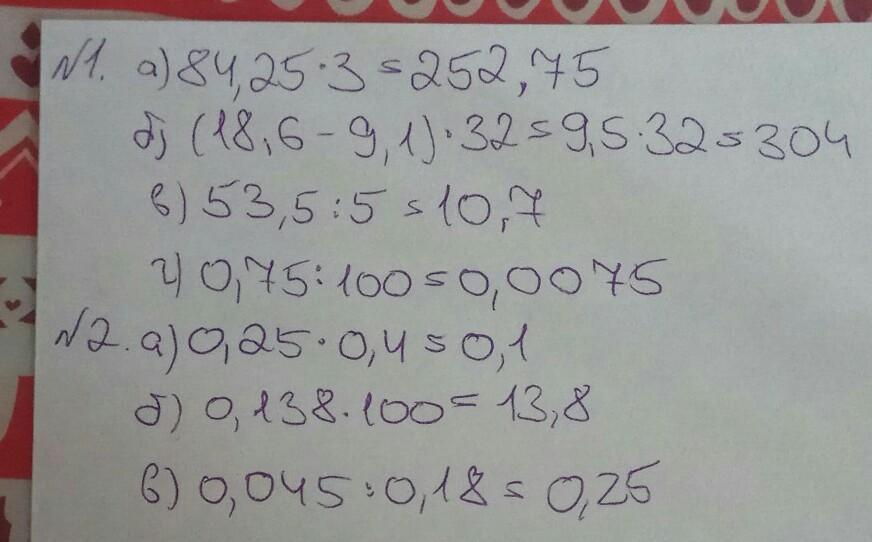 №1. а) 84,25·3=252,75
б) (18,6-9,1)·32=9,5·32=304
в) 53,5:5=10,7
г) 0,75:100=0,0075
№2. а) 0,25·0,4=0,1
б) 0,138·100=13,8
в) 0,045:0,18=0,25